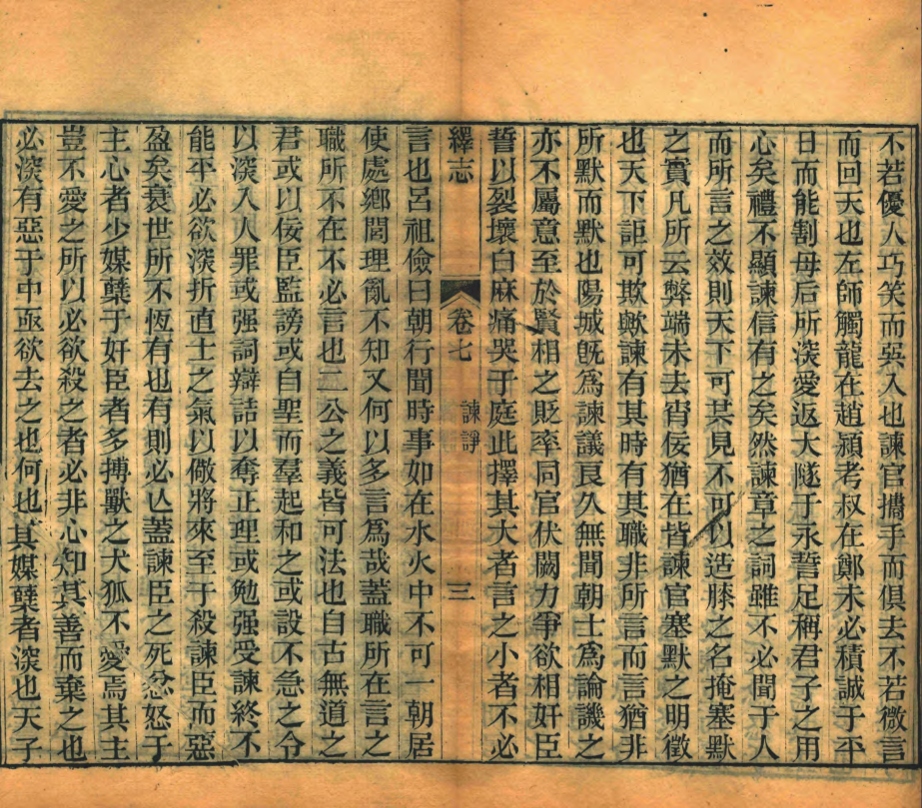 不若優人巧笑而吳入也諫官攜手而俱去不若微言
而回天也左師觸龍在趙潁考叔在鄭未必積誠于平
日而能割母后所深愛返大隧于永誓足稱君子之用
心矣禮不顯諫信有之矣然諫章之詞雖不必聞于人
而所言之效則天下可共見不可以造膝之名掩塞默
之實凡所云弊端未去宵佞猶在皆諫官塞默之明徵
也天下詎可欺歟諫有其時有其職非所言而言猶非
所默而默也陽城旣爲諫議良久無聞朝士爲論譏之
亦不屬意至於賢相之貶率同官伏闕力爭欲相奸臣
誓以裂壞白麻痛哭于庭此擇其大者言之小者不必
繹志 卷七 諫諍 三
言也呂祖儉曰朝行聞時事如在水火中不可一朝居
使處鄉閭理亂不知又何以多言爲哉蓋職所在言之
職所不在不必言也二公之義皆可法也自古無道之
君或以佞臣監謗或自聖而羣起和之或設不急之令
以深入人罪或强詞辯詰以奪正理或勉强受諫終不
能平必欲深折直士之氣以儆將來至于殺諫臣而惡
盈矣衰世所不恆有也有則必亾蓋諫臣之死忿怒于
主心者少媒糵于奸臣者多搏獸之犬狐不愛焉其主
豈不愛之所以必欲殺之者必非心知其善而棄之也
必深有惡于中亟欲去之也何也其媒糵者深也天子